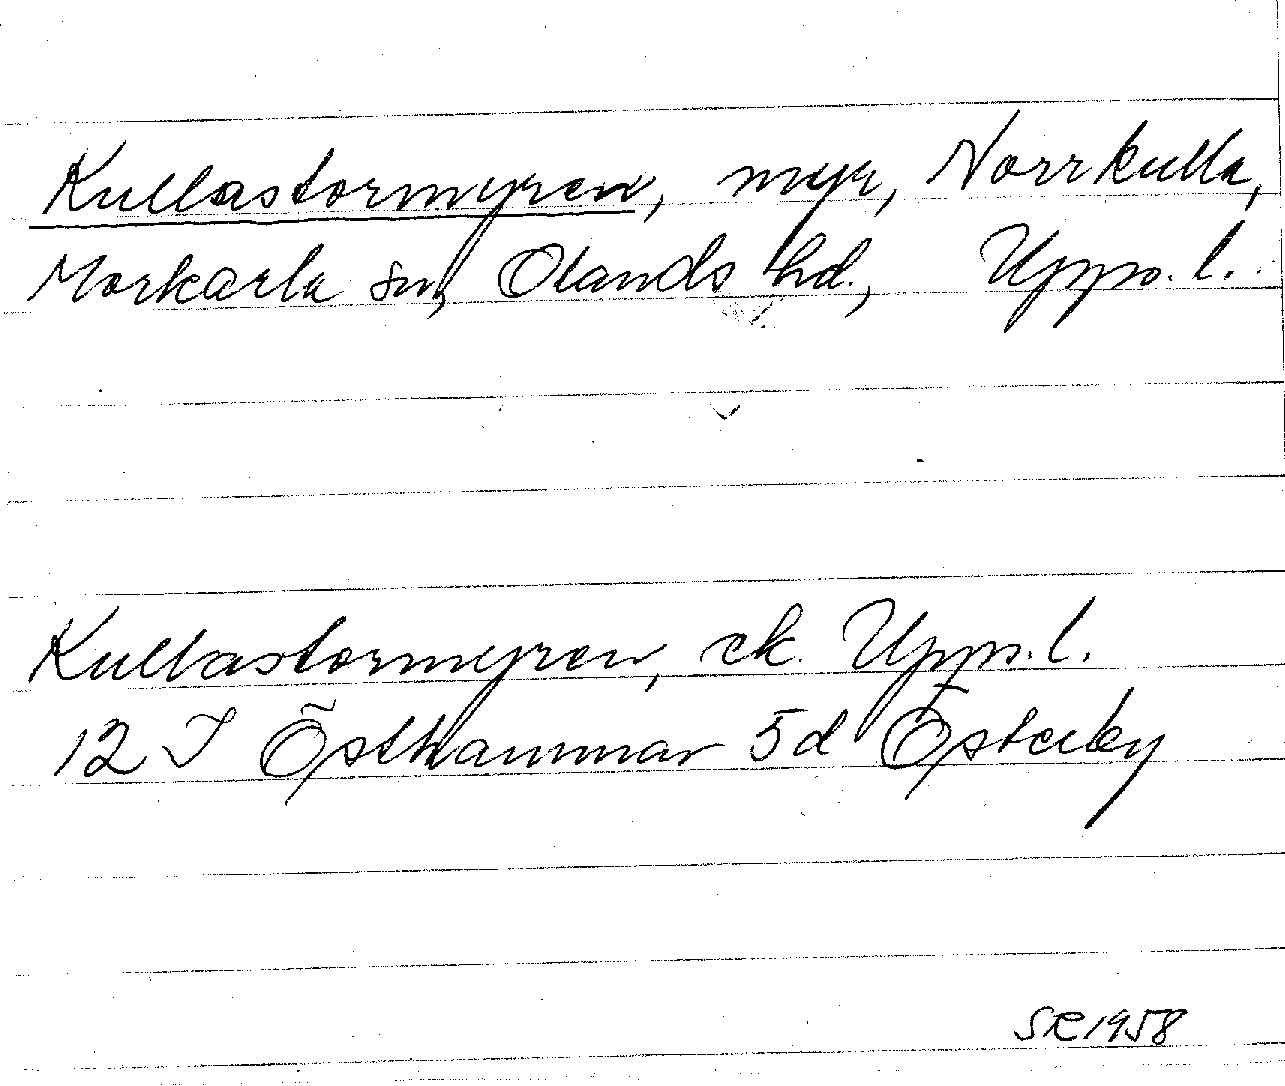 Kullastormyren, myr, Norrkulla,
Morkarla sn, Olands hd., Upps. l.
Kullastormyren, ek. Upps. l.
12 I Östhammar 5d Österby
SR 1958